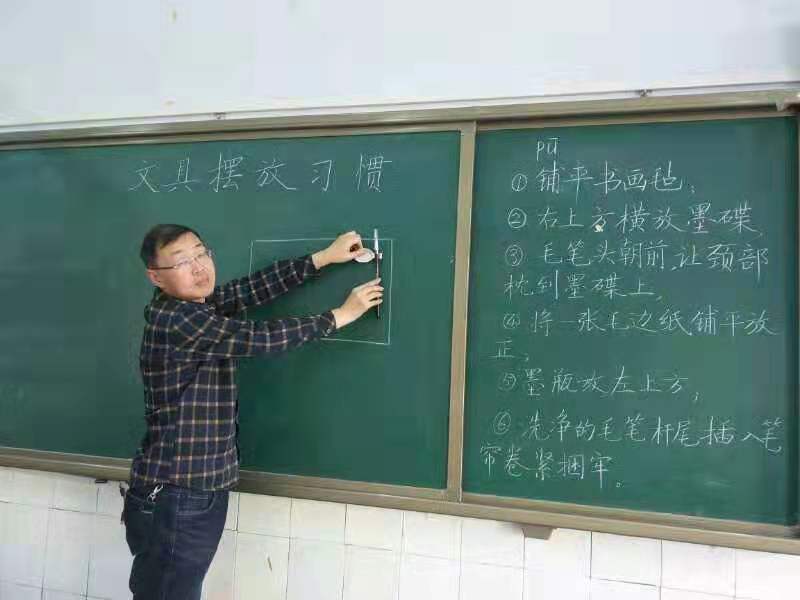 文具摆放习惯
pū
①铺平书画毡;
②右上方横放墨碟,
③毛笔头朝前,让颈部
枕到墨碟上,
④将一张毛边纸铺平放
正;
⑤墨瓶放左上方,
⑥洗净的毛笔杆尾插入笔
帘卷紧捆牢。